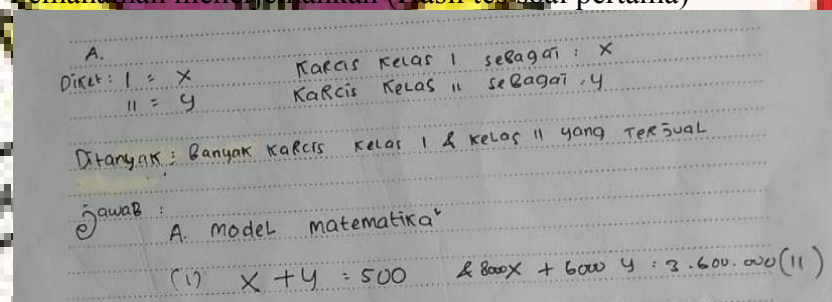 (Hasil tes soal pertama)
A.
Diket : I = x Karcis Kelas I sebagai : x
II = y Karcis Kelas II sebagai : y
Ditanyak : Banyak Karcis Kelas I & Kelas II yang Terjual
Jawab :
A. model matematika
(1) x + y = 500 & 8000x + 6000 y : 3.600.000 (11)